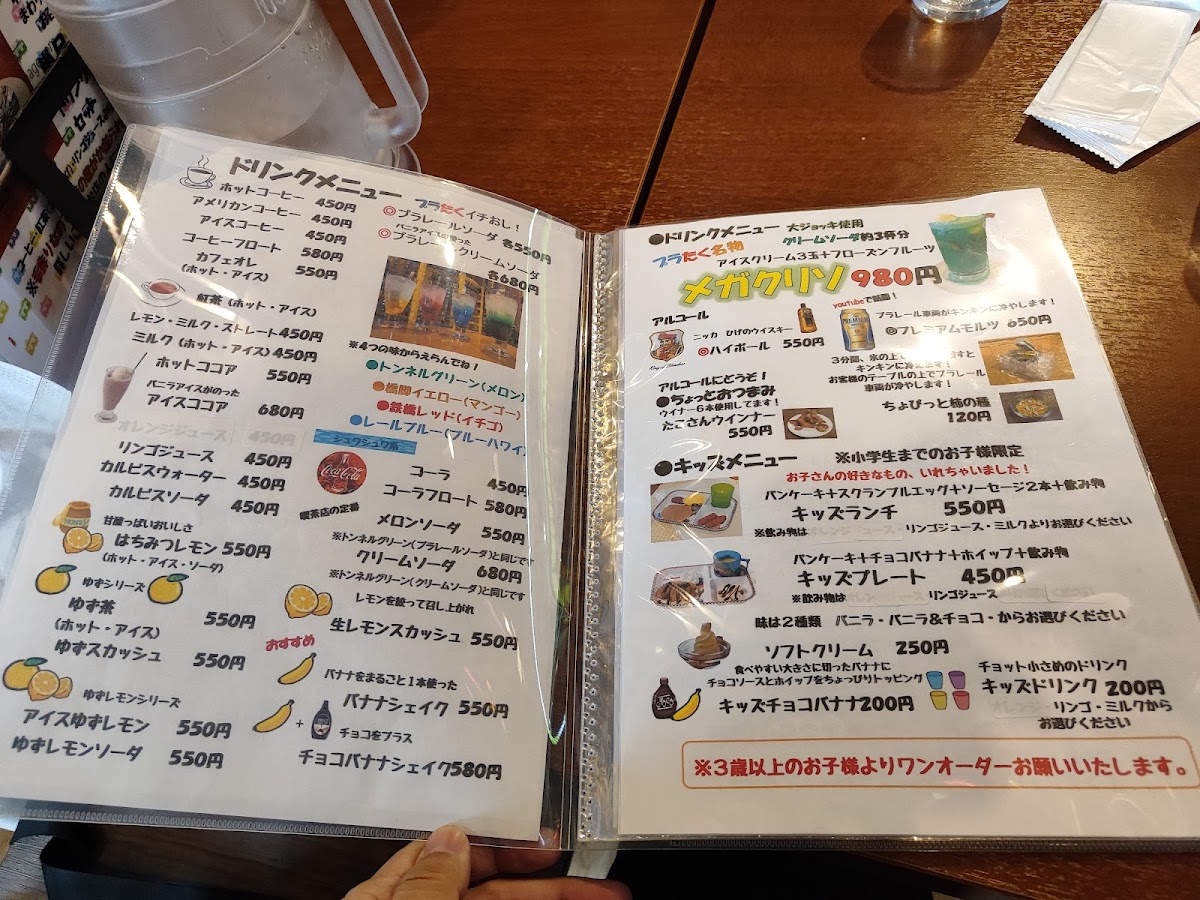 ドリンクメニュー
ホットコーヒー 450円
アメリカンコーヒー 450円
アイスコーヒー 450円
コーヒーフロート 580円
カフェオレ 550円
(ホット・アイス)
紅茶(ホット・アイス)
レモン・ミルク・ストレート 450円
ミルク(ホット・アイス) 450円
ホットココア 550円
バニラアイスがのった
アイスココア 680円
オレンジジュース 450円
リンゴジュース 450円
カルピスウォーター 450円
カルピスソーダ 450円
甘酸っぱいおいしさ
はちみつレモン 550円
(ホット・アイス・ソーダ)
ゆずシリーズ
ゆず茶 550円
(ホット・アイス)
ゆずスカッシュ 550円
ゆずレモンシリーズ
アイスゆずレモン 550円
ゆずレモンソーダ 550円
プラたくイチおし!
◎プラレールソーダ 各550円
バニラアイスの乗った
◎プラレールクリームソーダ
各680円
※4つの味からえらんでね!
●トンネルグリーン(メロン)
●橋脚イエロー(マンゴー)
●鉄橋レッド(イチゴ)
●レールブルー(ブルーハワイ)
シュワシュワ系
Coca-Cola
コーラ 450円
コーラフロート 580円
喫茶店の定番
メロンソーダ 550円
※トンネルグリーン(プラレールソーダ)と同じです
クリームソーダ 680円
※トンネルグリーン(クリームソーダ)と同じです
レモンを絞って召し上がれ
生レモンスカッシュ 550円
おすすめ
バナナをまるごと1本使った
バナナシェイク 550円
チョコをプラス
チョコバナナシェイク580円
●ドリンクメニュー 大ジョッキ使用
プラたく名物 クリームソーダ約3杯分
アイスクリーム3玉+フローズンフルーツ
メガクリソ 980円
アルコール
ニッカ ひげのウイスキー
◎ハイボール 550円
youtubeで話題!
プラレール車両がキンキンに冷やします!
◎プレミアムモルツ 650円
3分間、氷の上で
キンキンに冷えます!
お客様のテーブルの上でプラレール
車両が冷やします!
アルコールにどうぞ!
●ちょっとおつまみ
ウイナー6本使用してます!
たこさんウインナー
550円
ちょびっと柿の種
120円
●キッズメニュー ※小学生までのお子様限定
お子さんの好きなもの、いれちゃいました!
パンケーキ+スクランブルエッグ+ソーセージ2本+飲み物
キッズランチ 550円
※飲み物はオレンジジュース・リンゴジュース・ミルクよりお選びください
パンケーキ+チョコバナナ+ホイップ+飲み物
キッズプレート 450円
※飲み物は オレンジジュース リンゴジュース
味は2種類 バニラ・バニラ&チョコ・からお選びください
ソフトクリーム 250円
食べやすい大きさに切ったバナナに
チョコソースとホイップをちょっぴりトッピング
キッズチョコバナナ200円
チョット小さめのドリンク
キッズドリンク 200円
オレンジ・リンゴ・ミルクから
お選びください
※3歳以上のお子様よりワンオーダーお願いいたします。